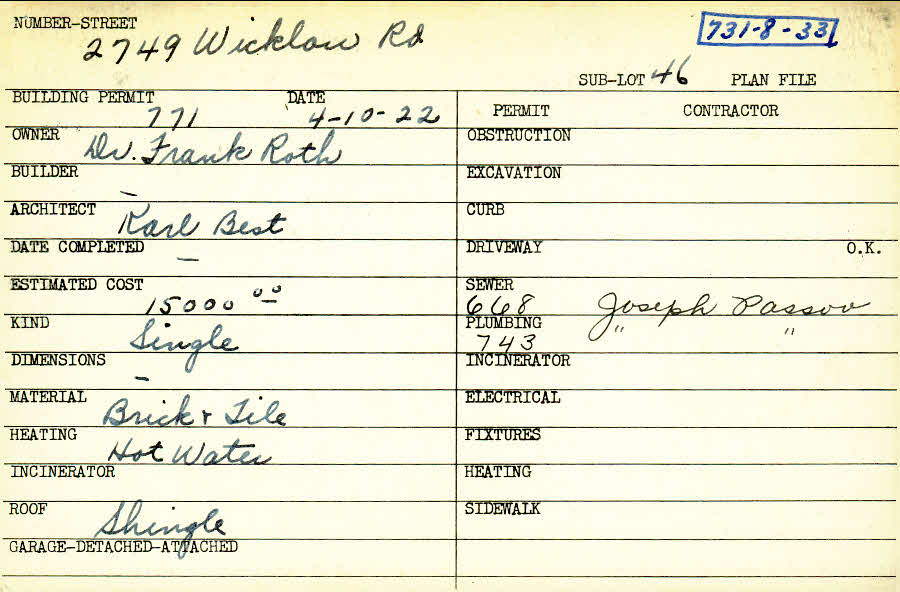 NUMBER-STREET
2749 Wicklow Rd
731-8-33
SUB-LOT 46 PLAN FILE
BUILDING PERMIT 771 DATE 4-10-22
PERMIT CONTRACTOR
OWNER Dr. Frank Roth
OBSTRUCTION
BUILDER —
EXCAVATION
ARCHITECT Karl Best
CURB
DATE COMPLETED —
DRIVEWAY O.K.
ESTIMATED COST 15000 00
SEWER 668 Joseph Passov
KIND Single
PLUMBING 743 " "
DIMENSIONS —
INCINERATOR
MATERIAL Brick + Tile
ELECTRICAL
HEATING Hot Water
FIXTURES
INCINERATOR
HEATING
ROOF Shingle
SIDEWALK
GARAGE-DETACHED-ATTACHED